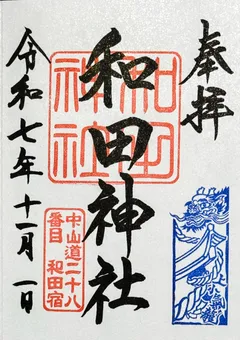 奉拝
和田神社
和田
神社
中山道二十八
番目 和田宿
令和七年十一月一日